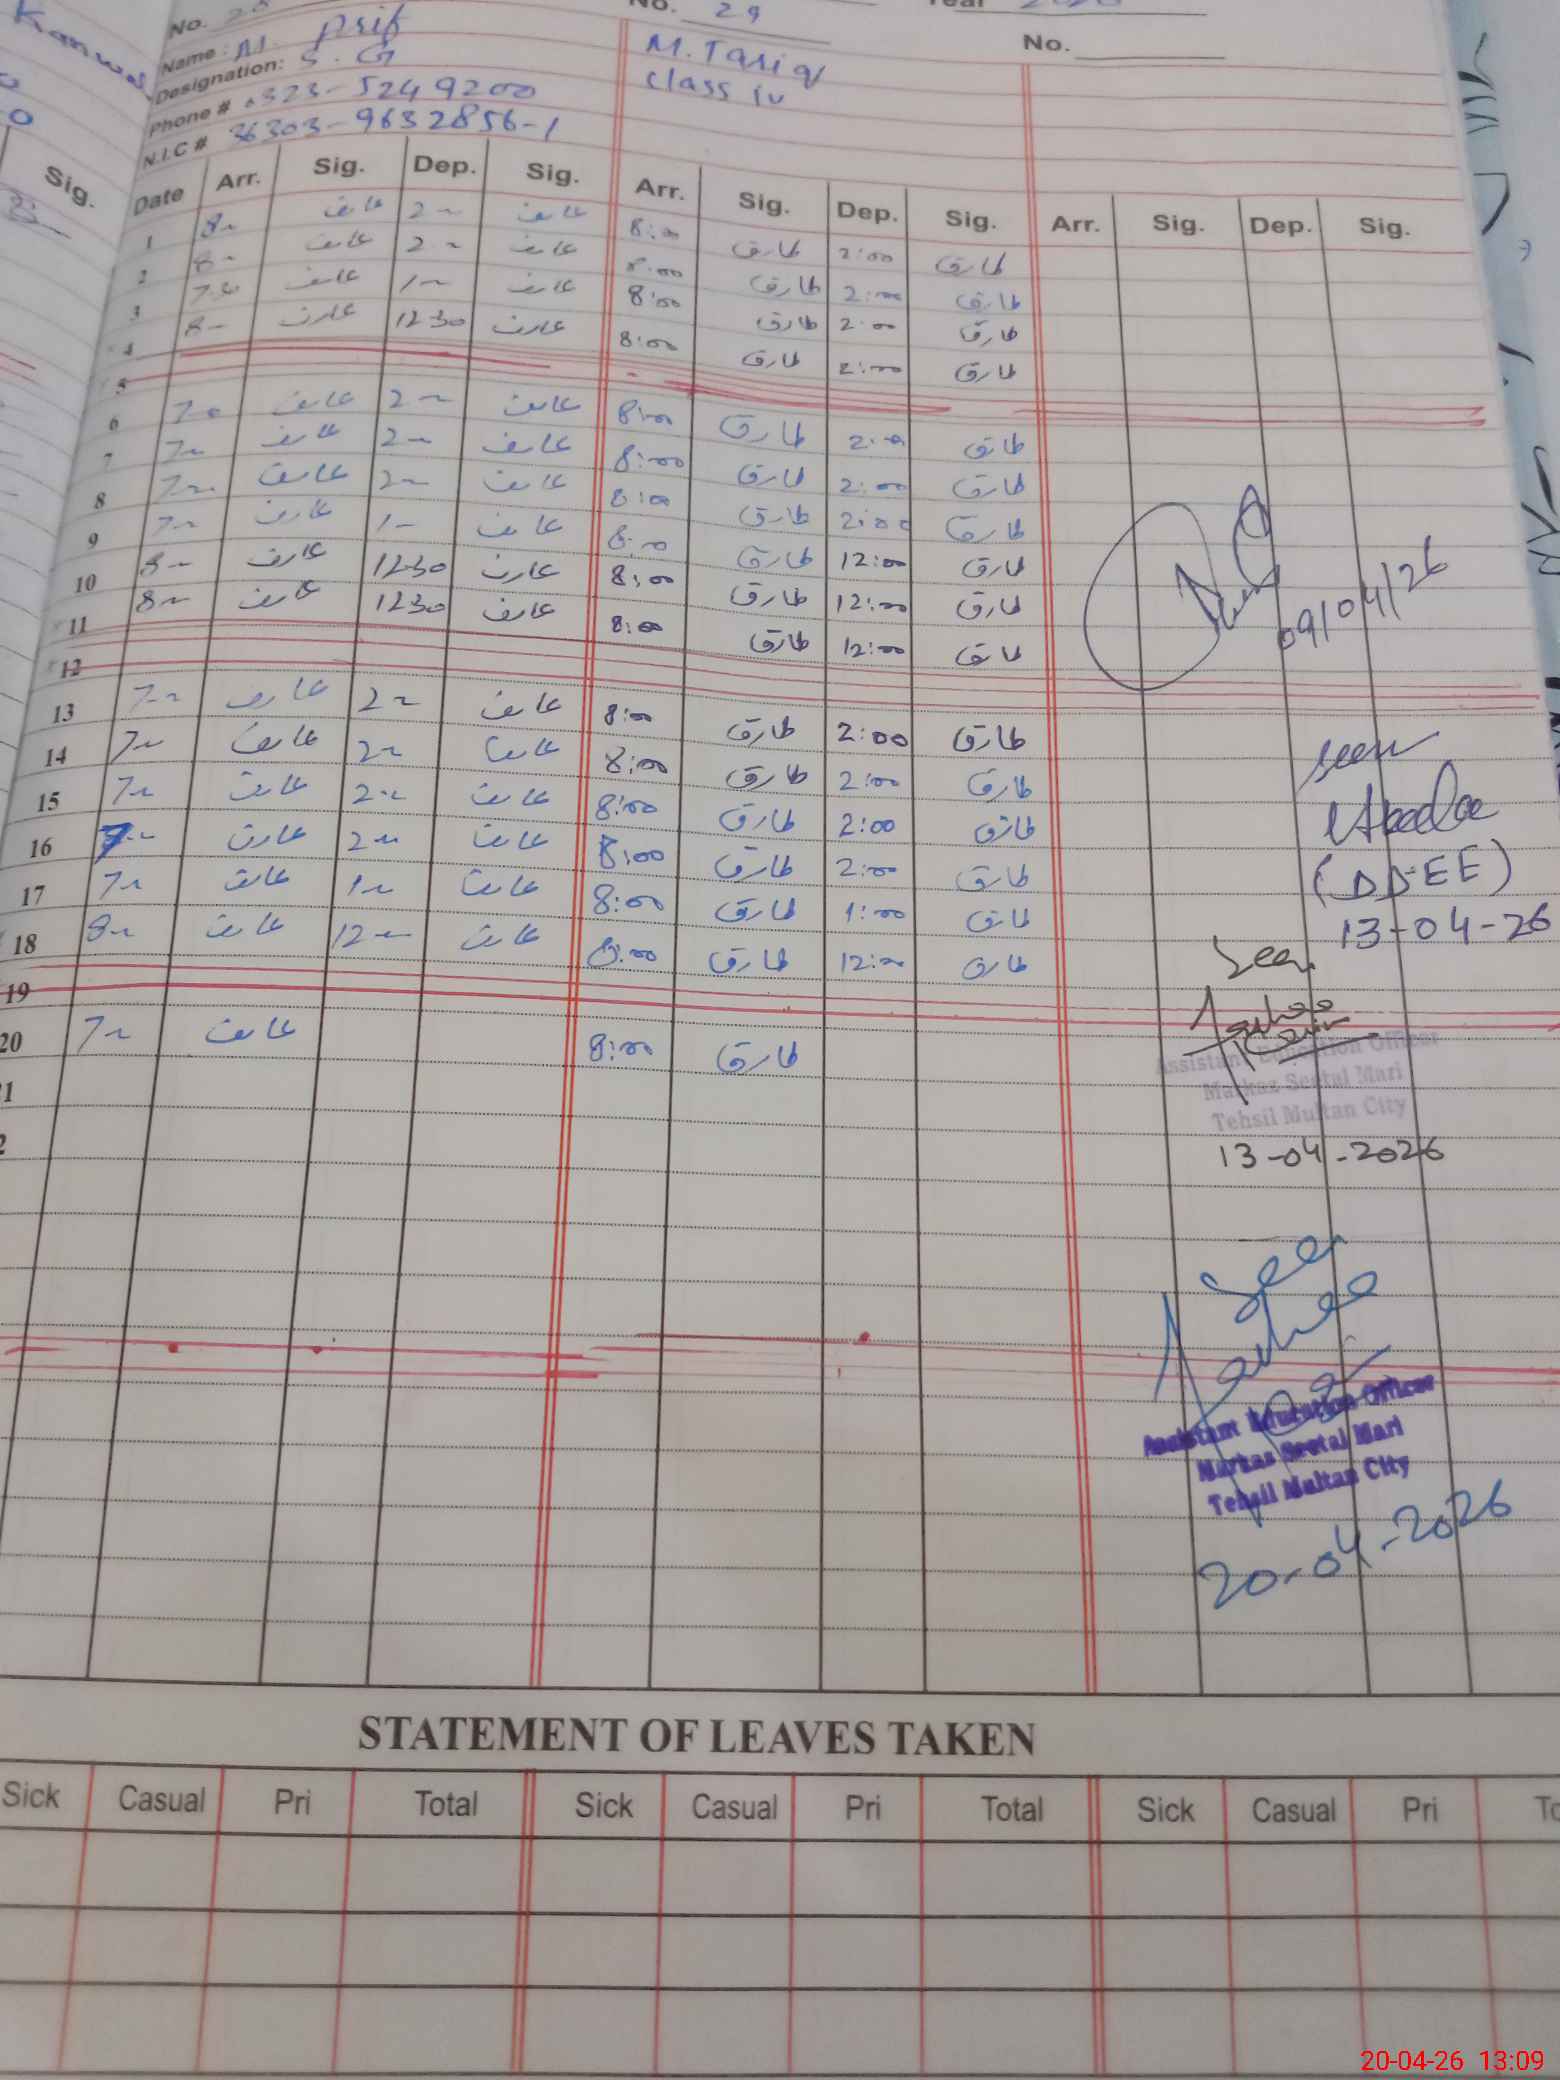 No. 29
Year
No.
Name: M.
Designation: S. G
M. Tariq
Class iv
Phone # 0323-5249200
N.I.C # 36303-9632856-1
Sig.
Date Arr. Sig. Dep. Sig. Arr. Sig. Dep. Sig. Arr. Sig. Dep. Sig.
1 8~ عارف 2~ عارف 8:00 طارق 2:00 طارق
2 8~ عارف 2~ عارف 8:00 طارق 2:00 طارق
3 عارف 1~ عارف 8:00 طارق 2:00 طارق
4 8~ عارف 1230 عارف 8:00 طارق 2:00 طارق
5
6 عارف 2~ عارف 8:00 طارق 2:00 طارق
7 7~ عارف 2~ عارف 8:00 طارق 2:00 طارق
8 7~ عارف 2~ عارف 8:00 طارق 2:00 طارق
9 7~ عارف 1~ عارف 8:00 طارق 12:00 طارق
10 8~ عارف 1230 عارف 8:00 طارق 12:00 طارق
11 8~ عارف 1230 عارف 8:00 طارق 12:00 طارق
09/04/26
12
13 7~ عارف 2~ عارف 8:00 طارق 2:00 طارق
14 7~ عارف 2~ عارف 8:00 طارق 2:00 طارق
15 7~ عارف 2~ عارف 8:00 طارق 2:00 طارق
16 7~ عارف 2~ عارف 8:00 طارق 2:00 طارق
17 7~ عارف 1~ عارف 8:00 طارق 1:00 طارق
18 8~ عارف 12~ عارف 8:00 طارق 12:00 طارق
seen
(DDEE)
13-04-26
19
20 7~ عارف 8:00 طارق
Seen
Assistant Education Officer
Markaz Seetal Mari
Tehsil Multan City
13-04-2026
Seen
Assistant Education Officer
Markaz Seetal Mari
Tehsil Multan City
20-04-2026
STATEMENT OF LEAVES TAKEN
Sick Casual Pri Total Sick Casual Pri Total Sick Casual Pri
20-04-26 13:09